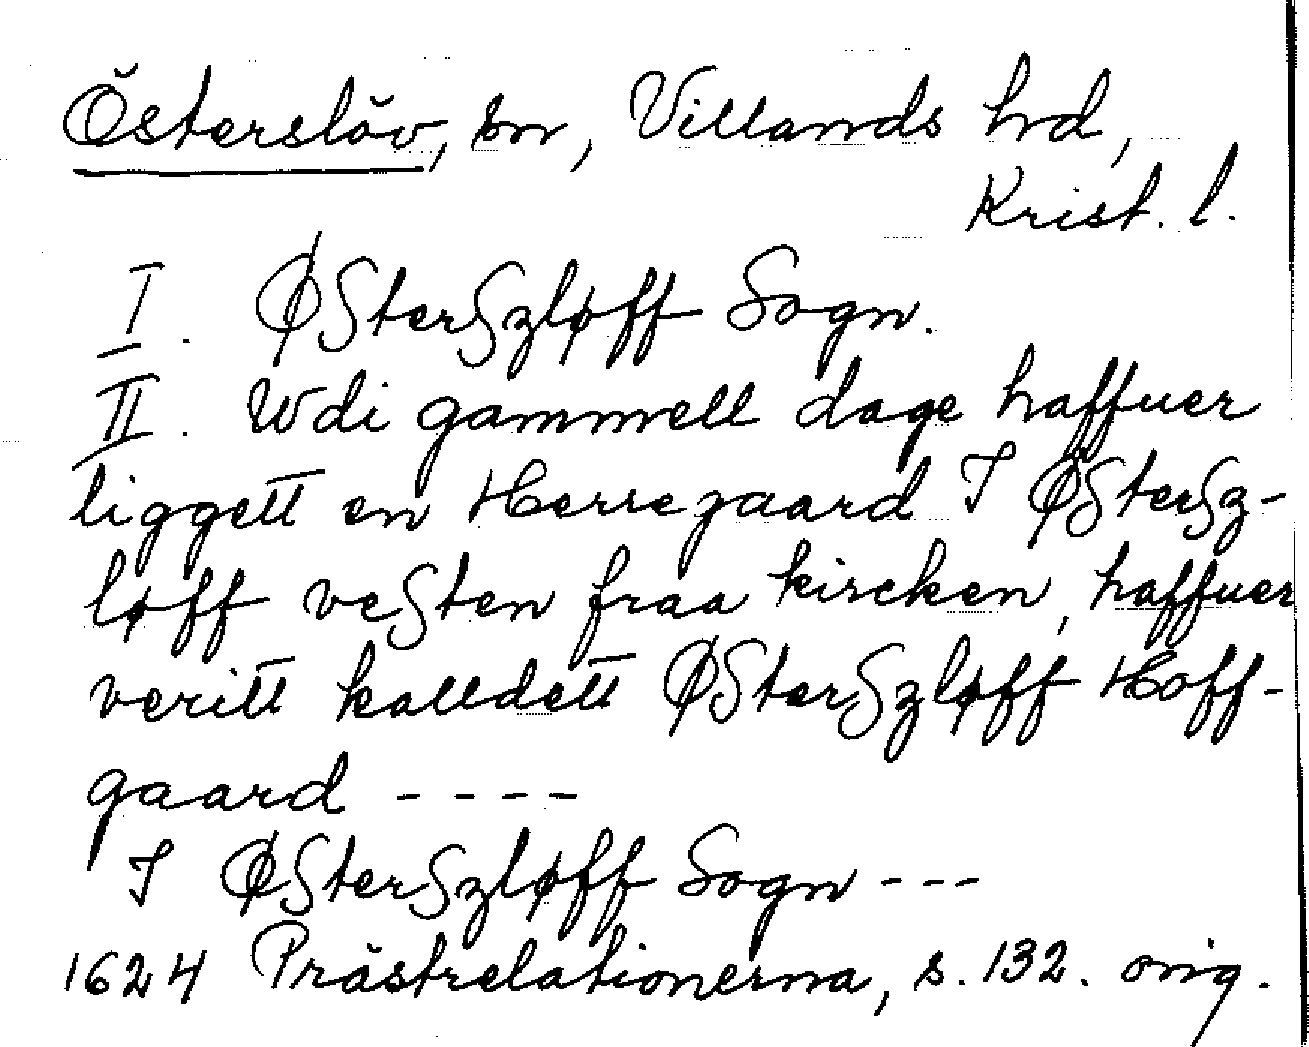 Österslöv, sn, Villands hd,
Krist. l.
I. ØsterszløffSogn.
II. Wdi gammell dage haffuer
liggett en Herregaard I Østersz-
løff vesten fraa kircken, haffuer
veritt kalldett Østerszløff Hoff-
gaard ----
I Østerszløff Sogn ---
1624 Prästrelationerna, s. 132. orig.